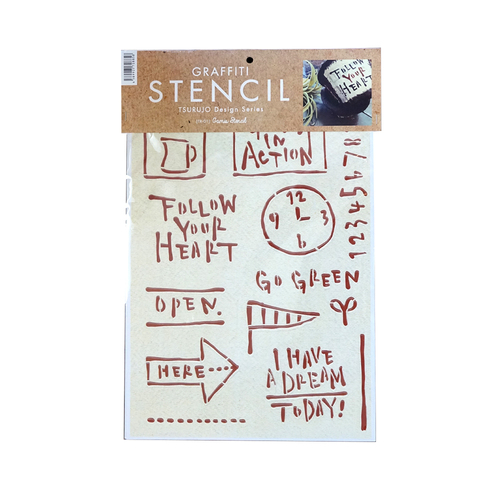 GRAFFITI
STENCIL
TSURUJO Design Series
FOLLOW
YOUR
HEART
IN
ACTION
FOLLOW
YOUR
HEART
12
9 3
6
1 2 3 4 5 6 7 8
GO GREEN
OPEN.
HERE
I HAVE
A DREAM
TODAY!